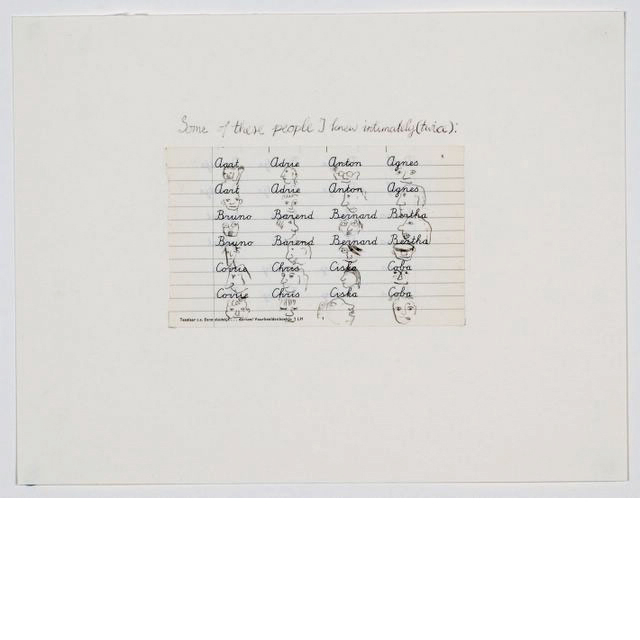 Some of these people I knew intimately (twice):
Aart Adrie Anton Agnes
Aart Adrie Anton Agnes
Bruno Barend Bernard Bertha
Bruno Barend Bernard Bertha
Corrie Chris Ciska Coba
Corrie Chris Ciska Coba